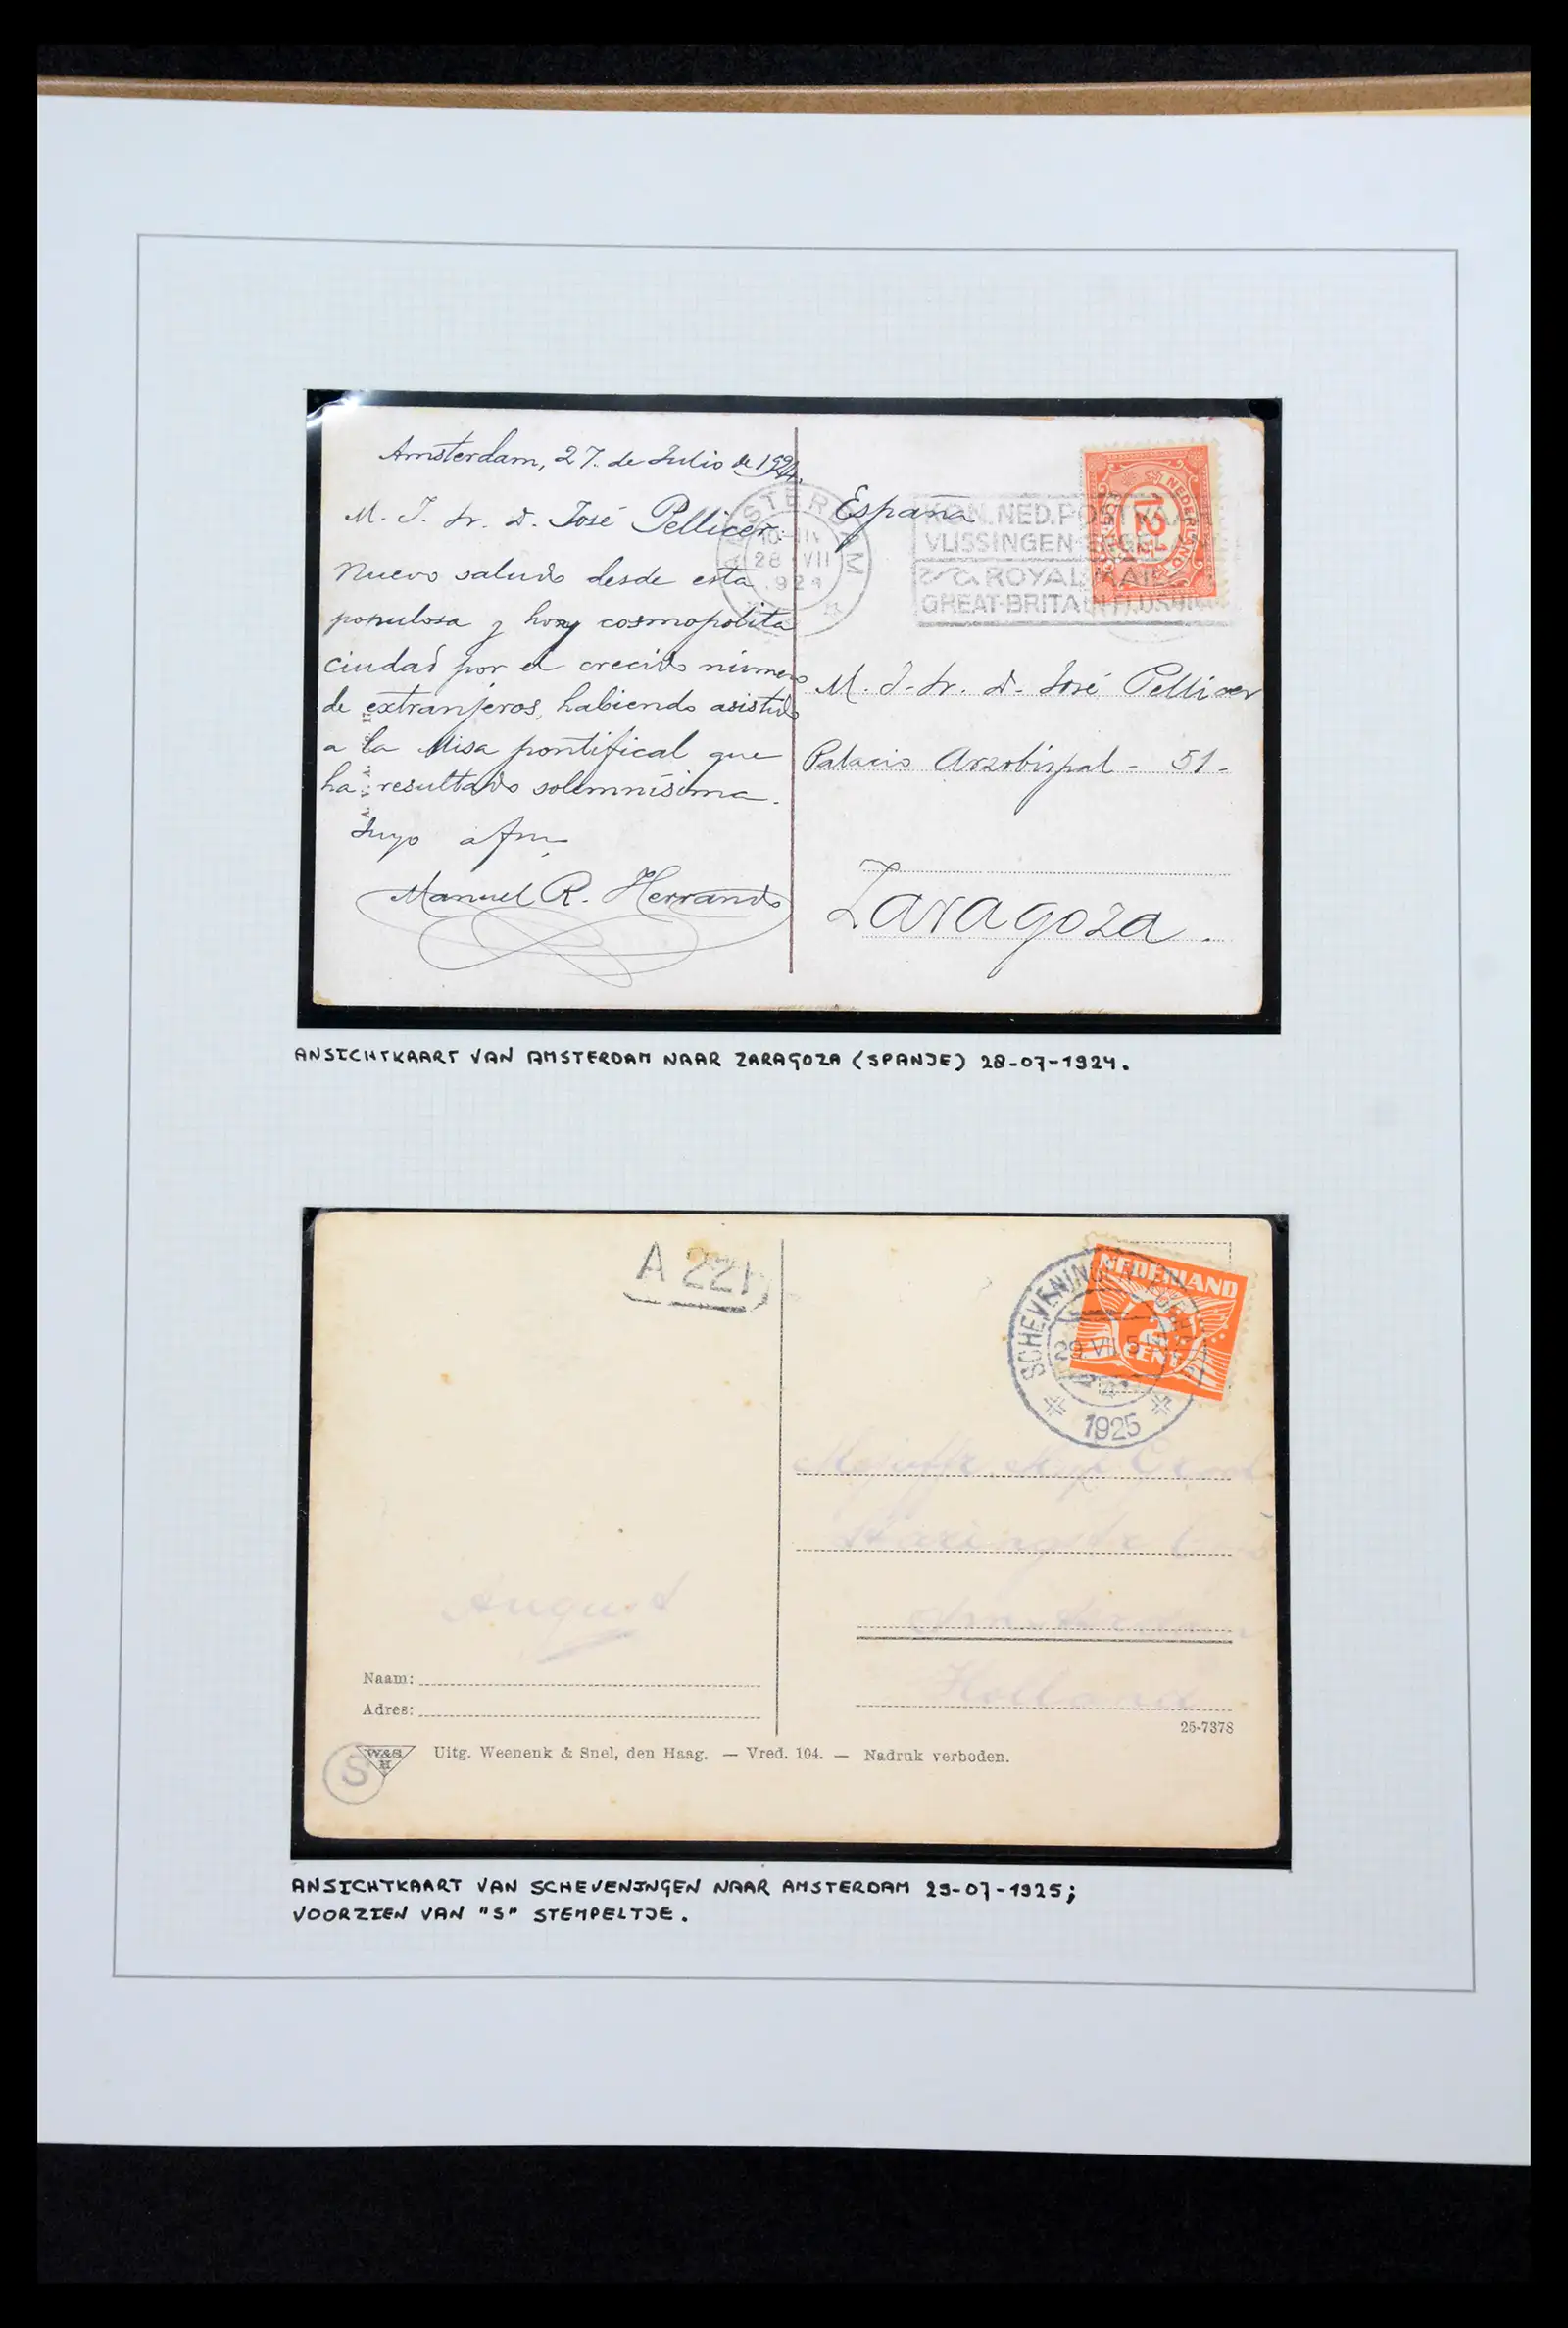 Amsterdam, 27. de Julio de 1924.
M. I. Sr. D. José Pellicer.
Nuevo saludo desde esta
populosa y hoy cosmopolita
ciudad por el crecido número
de extranjeros, habiendo asistido
a la Misa pontifical que
ha resultado solemnísima.
Suyo afm
Manuel R. Herrando
España
AMSTERDAM
28 VII
1924
KON. NED. POSTVAART
VLISSINGEN
ROYAL MAIL
GREAT-BRITAIN
NEDERLAND
12½
M. I. Sr. D. José Pellicer
Palacio Arzobispal - 51 -
Zaragoza.
ANSICHTKAART VAN AMSTERDAM NAAR ZARAGOZA (SPANJE) 28-07-1924.
A 221
NEDERLAND
2
CENT
SCHEVENINGEN
29 VII 5
1925
August
Amsterdam
Holland
Naam:
Adres:
25-7378
S
W&S
H
Uitg. Weenenk & Snel, den Haag. — Vred. 104. — Nadruk verboden.
ANSICHTKAART VAN SCHEVENINGEN NAAR AMSTERDAM 29-07-1925;
VOORZIEN VAN "S" STEMPELTJE.